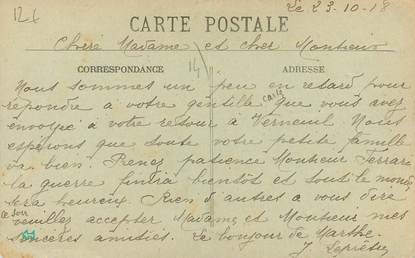 12f
Le 23-10-18
CARTE POSTALE
Chère Madame et cher Monsieur
CORRESPONDANCE
ADRESSE
Nous sommes un peu en retard pour
répondre a votre gentille carte que vous avez
envoyée à votre retour à Verneuil Nous
espérons que toute votre petite famille
va bien. Prenez patience Monsieur Ferrare
la guerre finira bientôt et tout le monde
sera heureux. Rien d'autres a vous dire
ce soir
veuillez accepter Madame et Monsieur mes
sincères amitiés. Le bonjour de Marthe.
J.